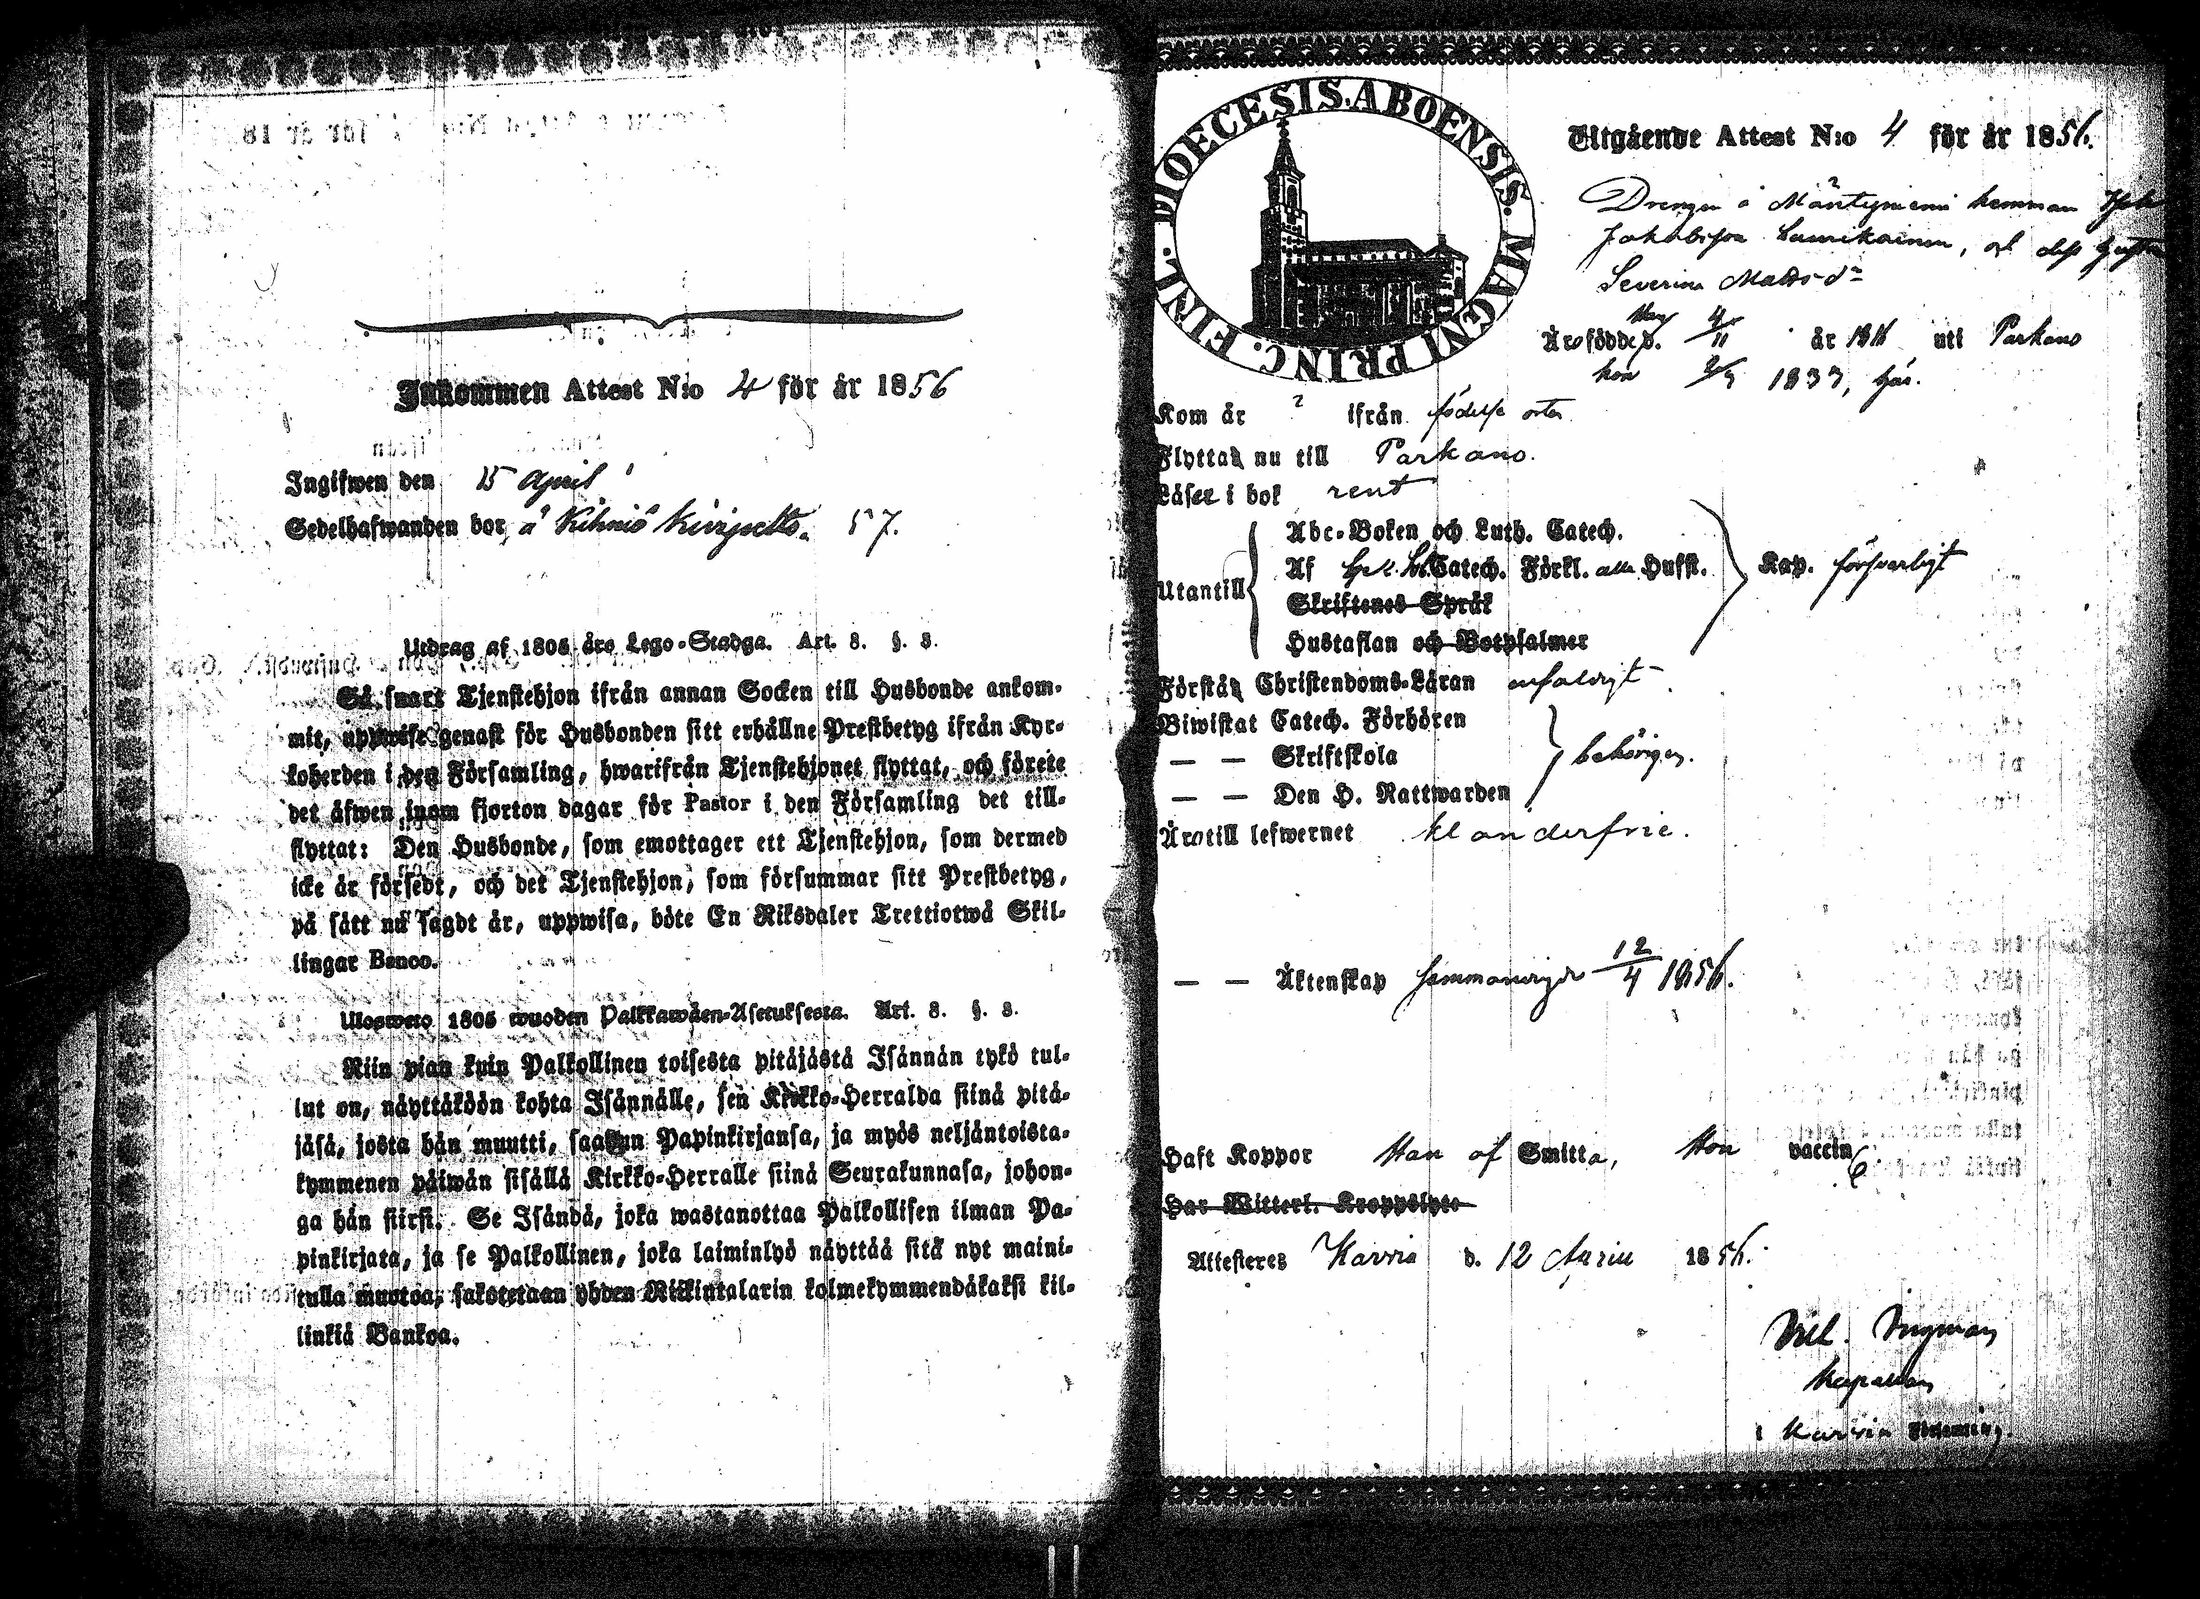 Inkommen Attest N:o 4 för år 1856
Ingifwen den 15 April
Sedelhafwanden bor å Kihniö Kivijietto. 57.
Utdrag af 1805 års Lego-Stadga. Art. 8. §. 3.
Så snart Tjenstehjon ifrån annan Socken till Husbonde ankom-
mit, uppwise genast för Husbonden sitt erhållne Prestbetyg ifrån Kyr-
koherden i den Församling, hwarifrån Tjenstehjonet flyttat, och förete
det äfwen inom fjorton dagar för Pastor i den Församling det till-
flyttat: Den Husbonde, som emottager ett Tjenstehjon, som dermed
icke är försedt, och det Tjenstehjon, som försummar sitt Prestbetyg,
på sätt nu sagdt är, uppwisa, böte En Riksdaler Trettiotwå Skil-
lingar Banco.
Uloswето 1805 wuoden Palkkawäen-Asetuksesta. Art. 8. §. 3.
Niin pian kuin Palkollinen toisesta pitäjästä Isännän tykö tul-
lut on, näyttäköön kohta Isännälle, sen Kirkko-Herralda siinä pitä-
jäsä, josta hän muutti, saadun Papinkirjansa, ja myös neljäntoista-
kymmenen päiwän sisällä Kirkko-Herralle siinä Seurakunnasa, johon-
ga hän siirsi. Se Isändä, joka wastanottaa Palkollisen ilman Pa-
pinkirjata, ja se Palkollinen, joka laiminlyö näyttää sitä nyt maini-
tulla muotoa, sakotetaan yhden Riikintalarin kolmekymmendäkaksi kil-
linkiä Bankoa.
DIOECESIS. ABOENSIS. MAGNI PRINC. FINL.
Utgående Attest N:o 4 för år 1856.
Drengen å Mäntyniemi hemman
Jakobsson Laurikainen, och dess hustru
Severina Matts dr
Äro födde, d. Han 4/11 år 1816 uti Parkano
hon 1837, här.
Kom år ? ifrån födelse orten
Flytta nu till Parkano.
Läser i bok rent
Utantill
Abc-Boken och Luth. Catech.
Af Catech. Förkl. alla Husst.
Skriftenes Språk
Hustaflan och Botpsalmer
Kap. försvarligt
Förstå Christendoms-Läran enfaldigt
Biwistat Catech. Förhören
— — Skriftskola
— — Den H. Nattwarden
behörigen.
Äro till lefwernet klanderfrie.
— — Äktenskap sammanvigde 12/4 1856.
Haft Koppor Han af Smitta, Hon vaccin
Har Witterl. Kroppslyte
Attesteras Karvia d. 12 Aprill 1856.
Vill. Ingman
Kapellan
i Karvia Församling.